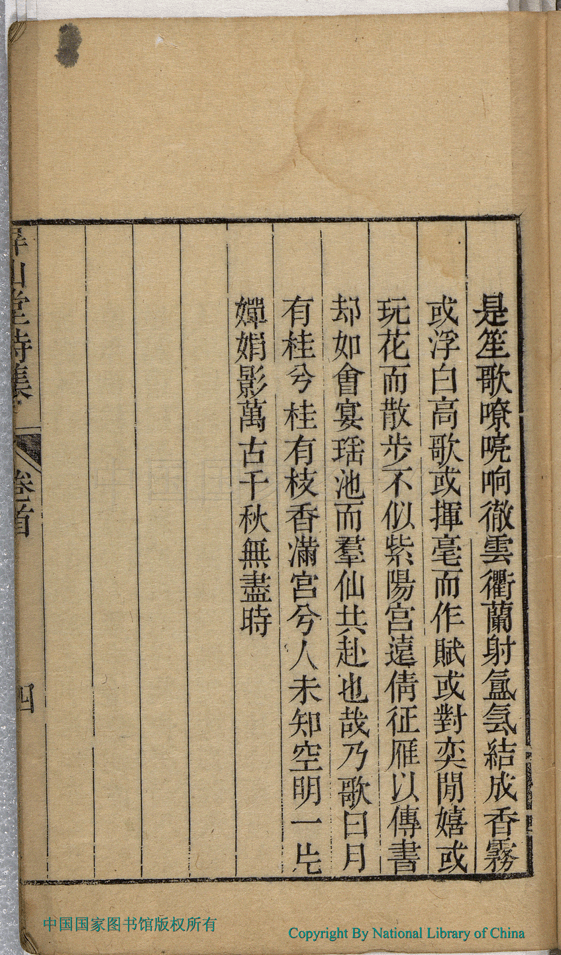 是笙歌嘹喨响徹雲衢蘭射氲氛結成香霧
或浮白高歌或揮毫而作賦或對奕閒嬉或
玩花而散步不似紫陽宮遠倩征雁以傳書
却如會宴瑶池而羣仙共赴也哉乃歌曰月
有桂兮桂有枝香滿宮兮人未知空明一片
嬋娟影萬古千秋無盡時
山堂詩集
卷首
四
中国国家图书馆版权所有
Copyright By National Library of China